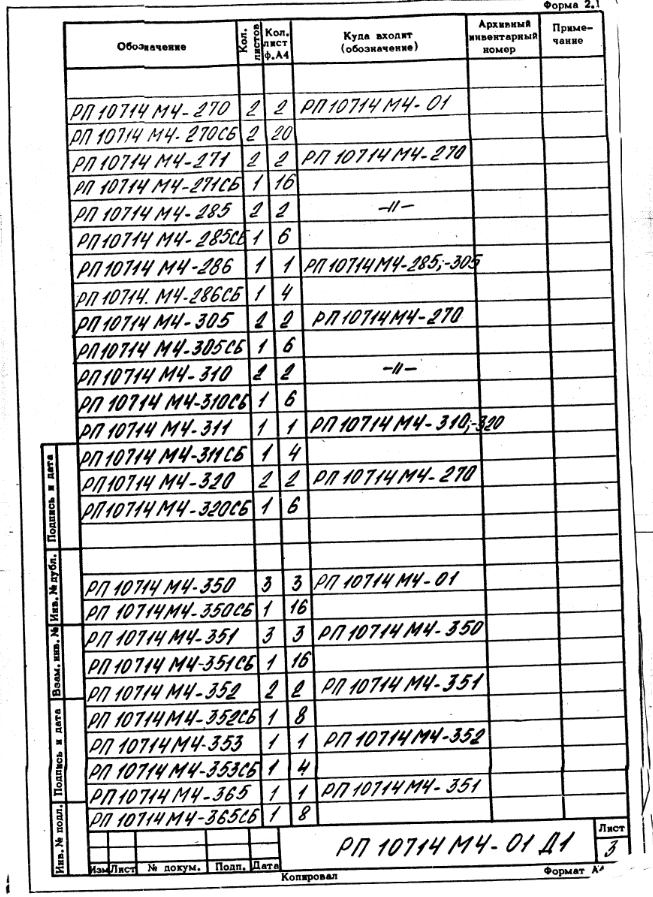 Форма 2.1
Обозначение Кол. листов Кол. лист ф.А4 Куда входит (обозначение) Архивный инвентарный номер Приме-чание
РП 10714 М4-270 2 2 РП 10714 М4-01
РП 10714 М4-270СБ 2 20
РП 10714 М4-271 2 2 РП 10714 М4-270
РП 10714 М4-271СБ 1 16
РП 10714 М4-285 2 2 -//-
РП 10714 М4-285СБ 1 6
РП 10714 М4-286 1 1 РП 10714 М4-285;-305
РП 10714. М4-286СБ 1 4
РП 10714 М4-305 2 2 РП 10714 М4-270
РП 10714 М4-305СБ 1 6
РП 10714 М4-310 2 2 -//-
РП 10714 М4-310СБ 1 6
РП 10714 М4-311 1 1 РП 10714 М4-310;-320
РП 10714 М4-311СБ 1 4
РП 10714 М4-320 2 2 РП 10714 М4-270
РП 10714 М4-320СБ 1 6
РП 10714 М4-350 3 3 РП 10714 М4-01
РП 10714 М4-350СБ 1 16
РП 10714 М4-351 3 3 РП 10714 М4-350
РП 10714 М4-351СБ 1 16
РП 10714 М4-352 2 2 РП 10714 М4-351
РП 10714 М4-352СБ 1 8
РП 10714 М4-353 1 1 РП 10714 М4-352
РП 10714 М4-353СБ 1 4
РП 10714 М4-365 1 1 РП 10714 М4-351
РП 10714 М4-365СБ 1 8
Подпись и дата
Инв. № дубл.
Взам. инв. №
Подпись и дата
Инв. № подл.
РП 10714 М4-01 Д1
Лист
3
Изм Лист № докум. Подп. Дата
Копировал
Формат А4